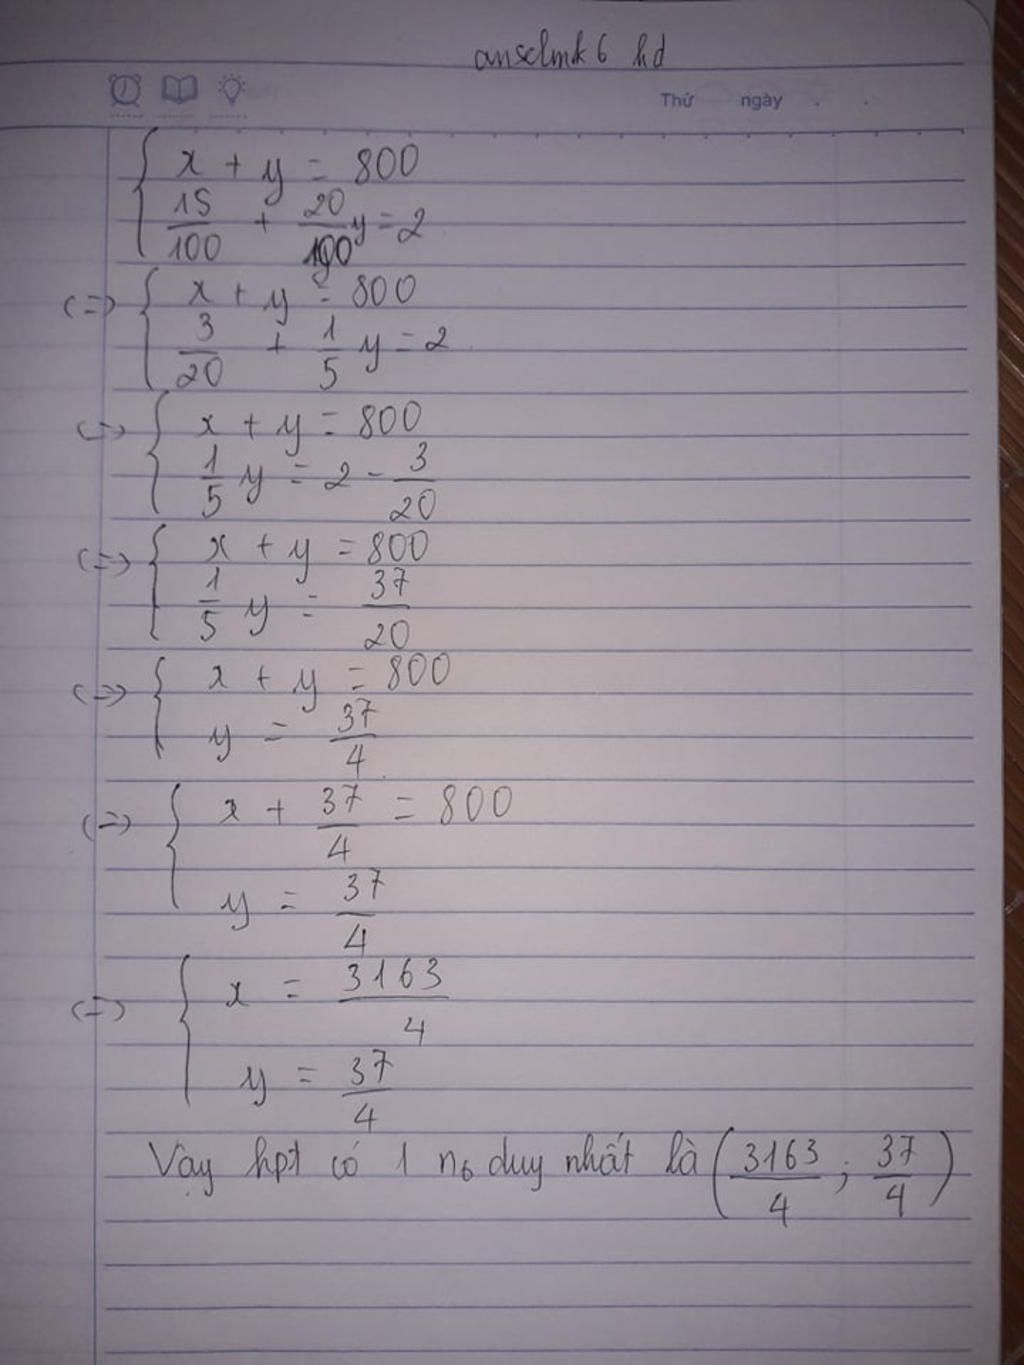 anselmk6 hd
Thứ ngày
{ x + y = 800
15/100 + 20/100 y = 2
(=) { x + y = 800
3/20 + 1/5 y = 2
(=) { x + y = 800
1/5 y = 2 - 3/20
(=) { x + y = 800
1/5 y = 37/20
(=) { x + y = 800
y = 37/4
(=) { x + 37/4 = 800
y = 37/4
(=) { x = 3163/4
y = 37/4
Vậy hpt có 1 n6 duy nhất là (3163/4 ; 37/4)